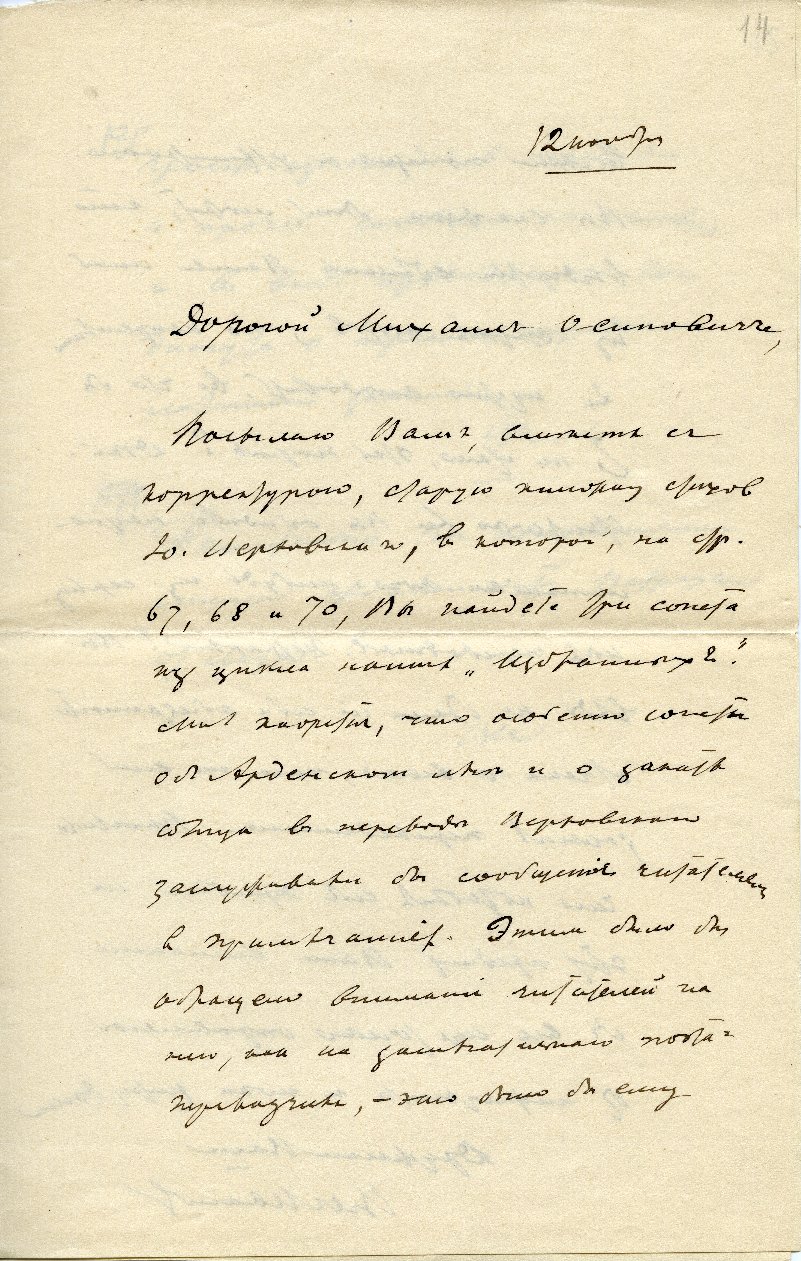 14
12 ноября
Дорогой Михаилъ Осиповичъ,
Посылаю Вамъ, вместе съ
корректурою, старую книжку стихов
Ю. Верховскаго, в которой, на стр.
67, 68 и 70, Вы найдете три сонета
из цикла наших „Избранныхъ".
Мне кажется, что особенно сонеты
об Арденском лесе и о закате
солнца в переводе Верховскаго
заслуживали бы сообщения читателям
в примѣчаніи. Этим было бы
обращено вниманіе читателей на
него, как на замечательнаго поэта-
переводчика, – это было бы ему